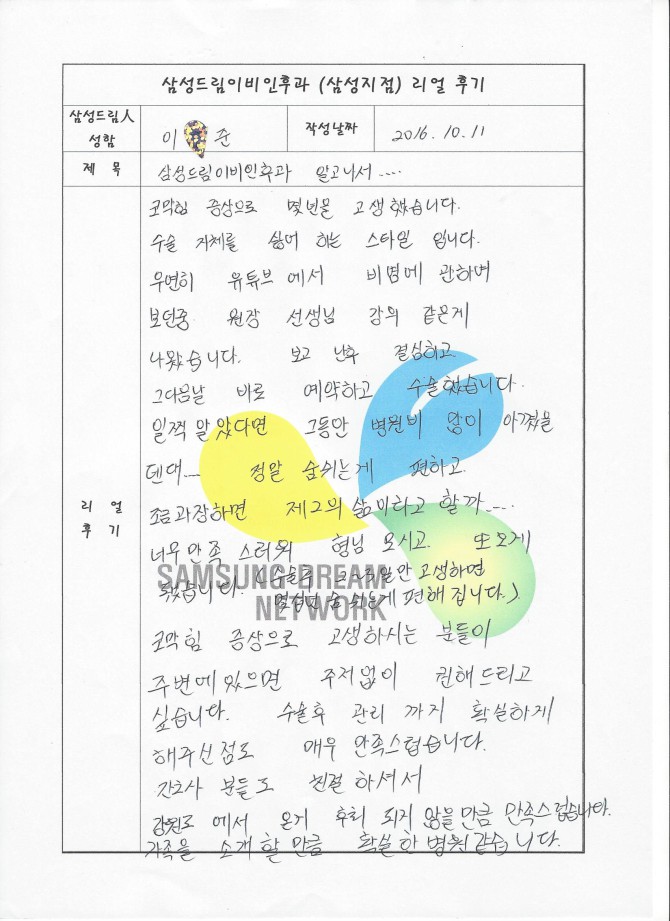 삼성드림이비인후과 (삼성지점) 리얼 후기
삼성드림人 성함
이 준
작성날짜
2016. 10. 11
제 목
삼성드림이비인후과 알고나서....
리 얼 후 기
코막힘 증상으로 몇년을 고생했습니다.
수술 자체를 싫어 하는 스타일 입니다.
우연히 유튜브에서 비염에 관하여
보던중 원장 선생님 강의 같은게
나왔습니다. 보고 난후 결심하고
그다음날 바로 예약하고 수술했습니다.
일찍 알았다면 그동안 병원비 많이 아꼈을
텐데.... 정말 숨쉬는게 편하고.
조금과장하면 제2의 삶이라고 할까.....
너무만족 스러워 형님 모시고 또오게
됐습니다. (수술후 2~3일만 고생하면
몇십년 숨쉬는게 편해집니다.)
SAMSUNG DREAM
NETWORK
코막힘 증상으로 고생하시는 분들이
주변에있으면 주저없이 권해드리고
싶습니다. 수술후 관리 까지 확실하게
해주신점도 매우 만족스럽습니다.
간호사 분들도 친절 하셔서
강원도 에서 온게 후회 되지 않을만큼 만족스럽습니다.
가족을 소개할만큼 확실한 병원같습니다.